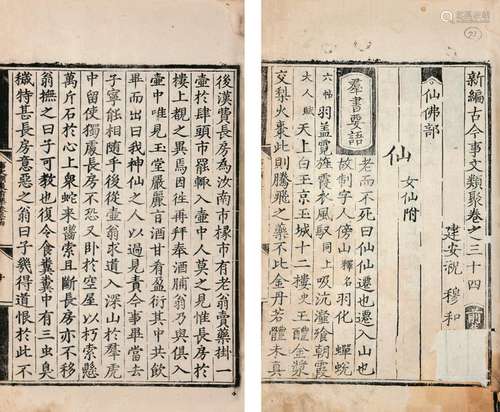 新編古今事文類聚卷之三十四
前集
建安祝 穆和
仙佛部
仙 女仙附
羣書要語
老而不死曰仙仙遷也遷入山也
故制字人傍山釋名羽化 蟬蛻
六帖 羽蓋霓旌霞衣風馭同上吸沆瀣飡朝霞
大人賦 天上白玉京玉城十二樓史王醴金漿
交梨火棗此則騰飛之藥不比金丹若體未真
21
後漢費長房為汝南市椽市有老翁賣藥掛一
壺於肆頭市罷輙入壺中人莫之見惟長房於
樓上覩之異焉因徃再拜奉酒脯翁乃與俱入
壺中唯見玉堂嚴麗旨酒甘肴盈衍其中共飲
畢而出曰我神仙之人以過見責今事畢當去
子寧能相隨乎後從壺翁求道入深山於羣虎
中留使獨處長房不恐又卧於空屋以朽索懸
萬斤石於心上衆蛇来嚙索且斷長房亦不移
翁撫之曰子可教也復令食糞糞中有三虫臭
穢特甚長房意惡之翁曰子幾得道恨於此不